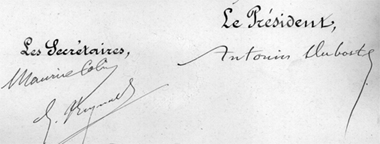 Le Président,
Antonin Dubost
Les Secrétaires,
Maurice Colin
G. Reynald